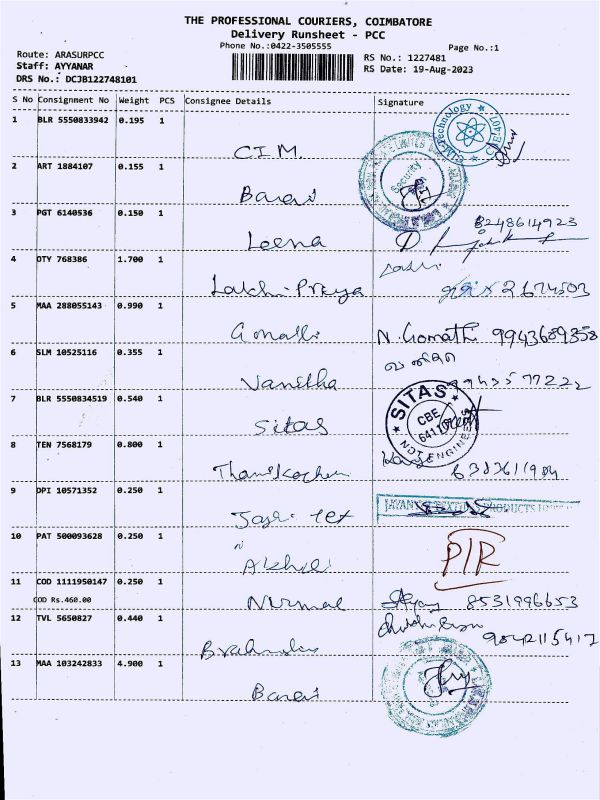 THE PROFESSIONAL COURIERS, COIMBATORE
Delivery Runsheet - PCC
Phone No.:0422-3505555
Page No.:1
Route: ARASURPCC
Staff: AYYANAR
DRS No.: DCJB122748101
RS No.: 1227481
RS Date: 19-Aug-2023
S No Consignment No Weight PCS Consignee Details Signature
1 BLR 5550833942 0.195 1
Technology
CIM
2 ART 1884107 0.155 1
Security
Barani
3 PGT 6140536 0.150 1
8248614923
Leena
4 OTY 768386 1.700 1
Lakshi Preya 2674503
5 MAA 288055143 0.990 1
Gomathi N. Gomathi 9943689358
6 SLM 10525116 0.355 1
Vanitha
7 BLR 5550834519 0.540 1
SITAS
CBE
Sitas
8 TEN 7568179 0.800 1
9 DPI 10571352 0.250 1
PRODUCTS
10 PAT 500093628 0.250 1
Akhil
11 COD 1111950147 0.250 1
COD Rs.460.00
Nirmal 8531996653
12 TVL 5650827 0.440 1
9842115417
13 MAA 103242833 4.900 1
Barani